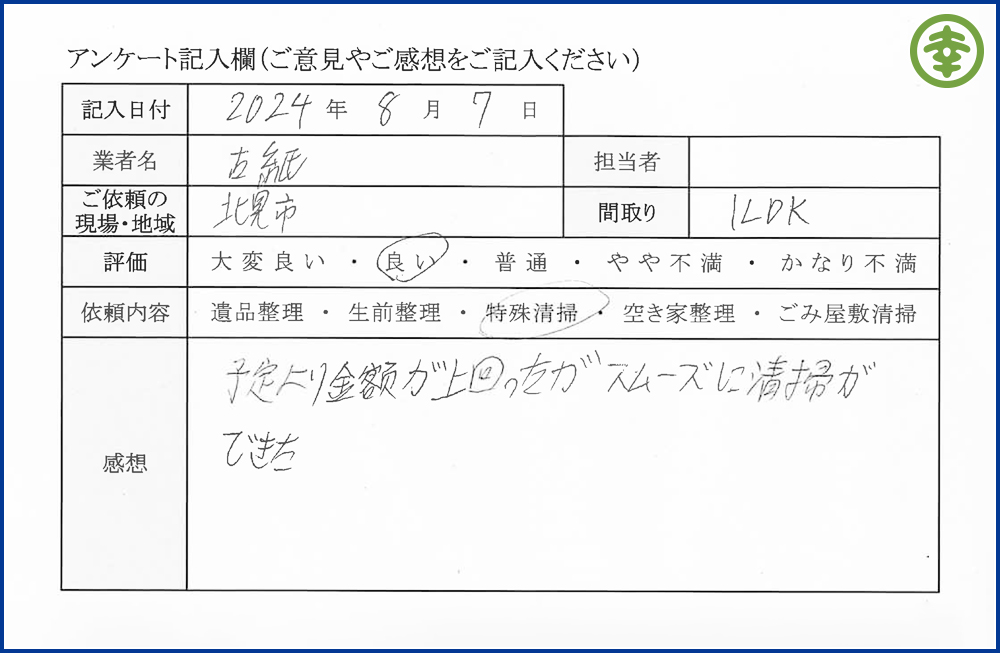 アンケート記入欄(ご意見やご感想をご記入ください)
記入日付 2024 年 8 月 7 日
業者名 古紙 担当者
ご依頼の
現場・地域 北見市 間取り 1LDK
評価 大変良い ・ 良い ・ 普通 ・ やや不満 ・ かなり不満
依頼内容 遺品整理 ・ 生前整理 ・ 特殊清掃 ・ 空き家整理 ・ ごみ屋敷清掃
感想 予定より金額が上回ったがスムーズに清掃が
できた